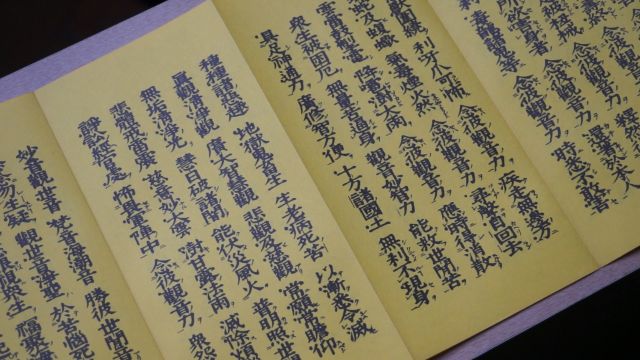 所欲害身者 念彼觀音力 還著於本
毒龍諸鬼等 念彼觀音力 時悉不敢害
利牙爪可怖 念彼觀音力 疾走無邊方
蚖蛇及蝮蠍 氣毒煙火燃 念彼觀音力 尋聲自回去
雲雷鼓掣電 降雹澍大雨 念彼觀音力 應時得消散
衆生被困厄 無量苦逼身 觀音妙智力 能救世間苦
具足神通力 廣修智方便 十方諸國土 無刹不現身
種種諸惡趣 地獄鬼畜生 生老病死苦 以漸悉令滅
眞觀清淨觀 廣大智慧觀 悲觀及慈觀 常願常瞻仰
無垢清淨光 慧日破諸闇 能伏災風火 普明照世
悲體戒雷震 慈意妙大雲 澍甘露法雨 滅除煩
諍訟經官處 怖畏軍陣中 念彼觀音力 衆
妙音觀世音 梵音海潮音 勝彼世間音
念念勿生疑 觀世音淨聖 於苦惱死